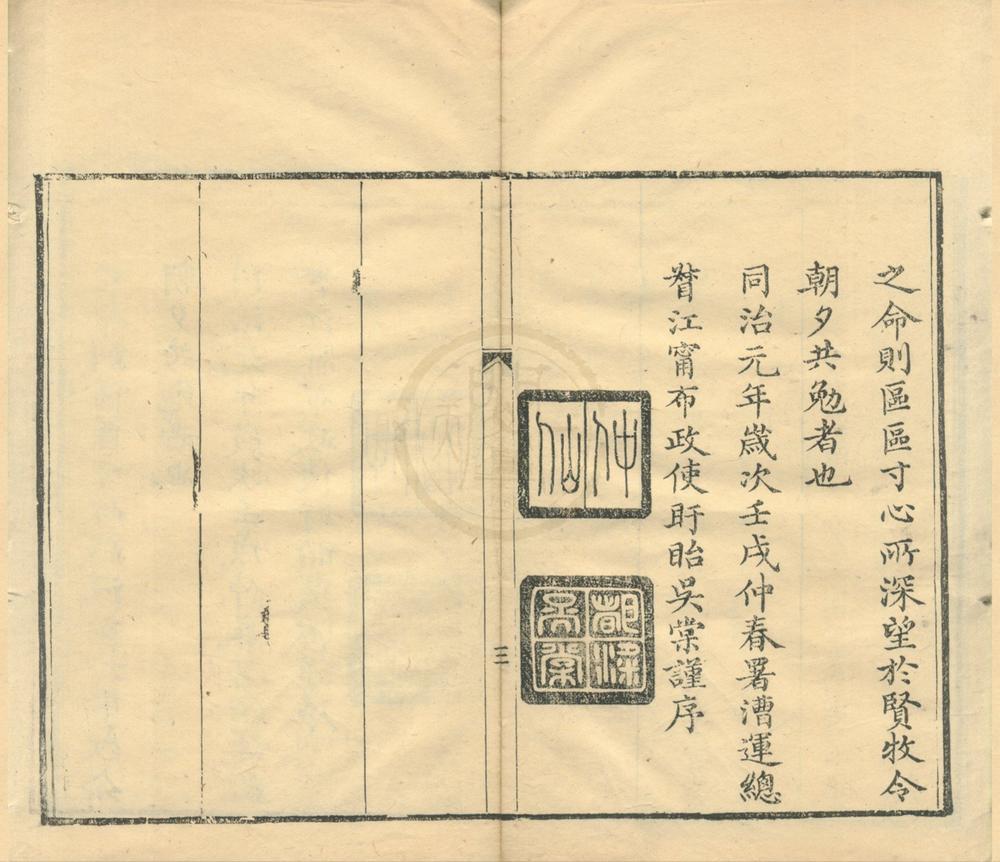 之命則區區寸心所深望於賢牧令
朝夕共勉者也
同治元年歲次壬戌仲春署漕運總
督江甯布政使盱眙吳棠謹序
仲仙
都梁吳棠
三